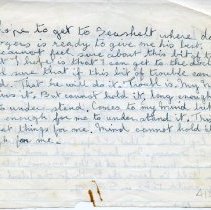 hope to get to Gearshelt where do
rgers is ready to give me his best
cannot feel sure about this bit of t
t I hope is that I can get to the doct
d sure that if this bit of trouble can
d. That he will do it. Trouble is. My m
s it. But cannot hold it, long enough
to under stand. Comes to my mind but
enough for me to under stand it. Th
at things for me. Mind cannot hold it
for me.